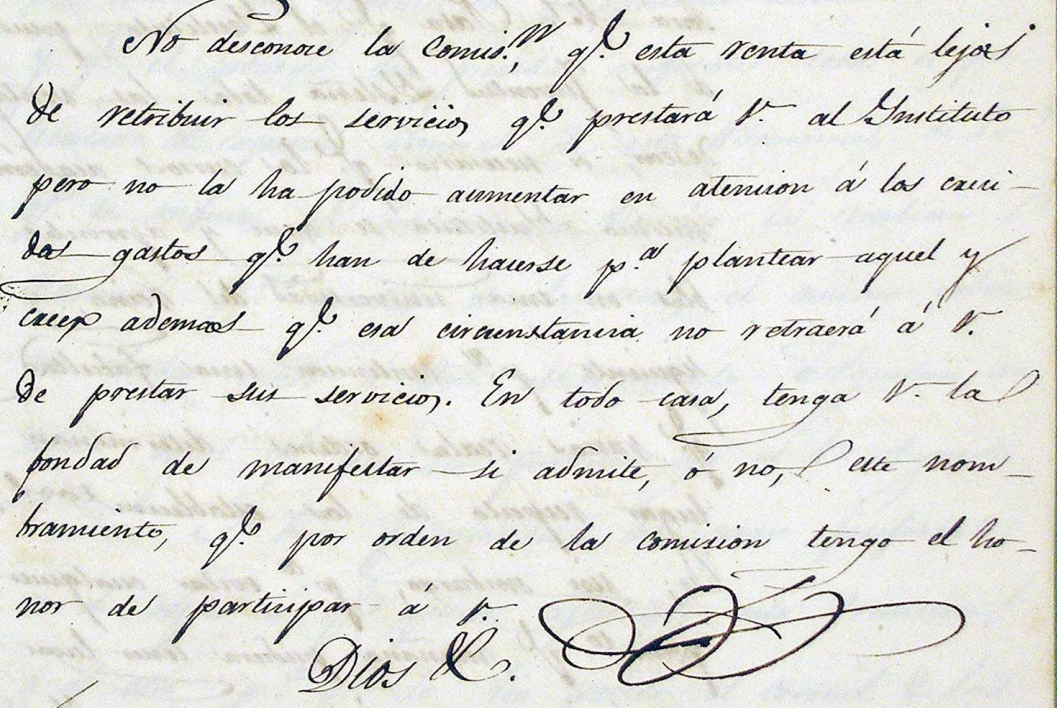 No desconoce la Comis.ⁿ, q.ᵉ esta renta está lejos
de retribuir los servicios q.ᵉ prestará V. al Instituto
pero no la ha podido aumentar en atencion á los creci-
dos gastos q.ᵉ han de hacerse p.ᵃ plantear aquel y
cree ademas q.ᵉ esa circunstancia no retraerá á V.
de prestar sus servicios. En todo caso, tenga V. la
bondad de manifestar si admite, ó no, este nom-
bramiento, q.ᵉ por orden de la comision tengo el ho-
nor de participar á V.
Dios &.